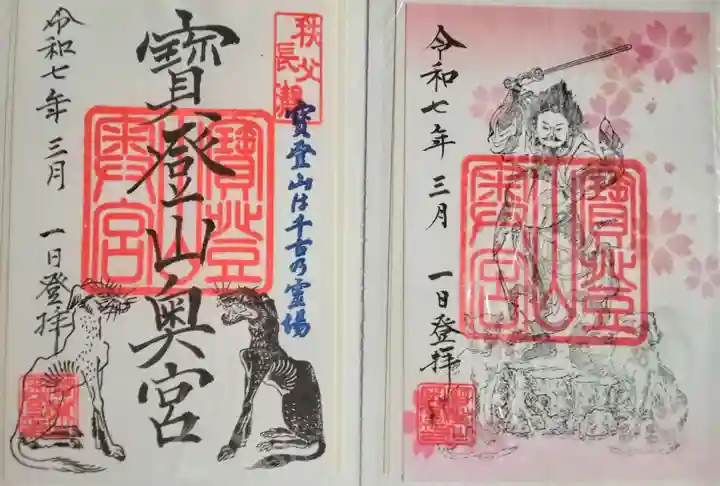 秩父
長瀞
寶登山は千古乃霊場
寶登山奥宮
寶登
山
奥宮
令和七年 三月 一日登拝
寶登
山
奥宮
令和七年 三月 一日登拝